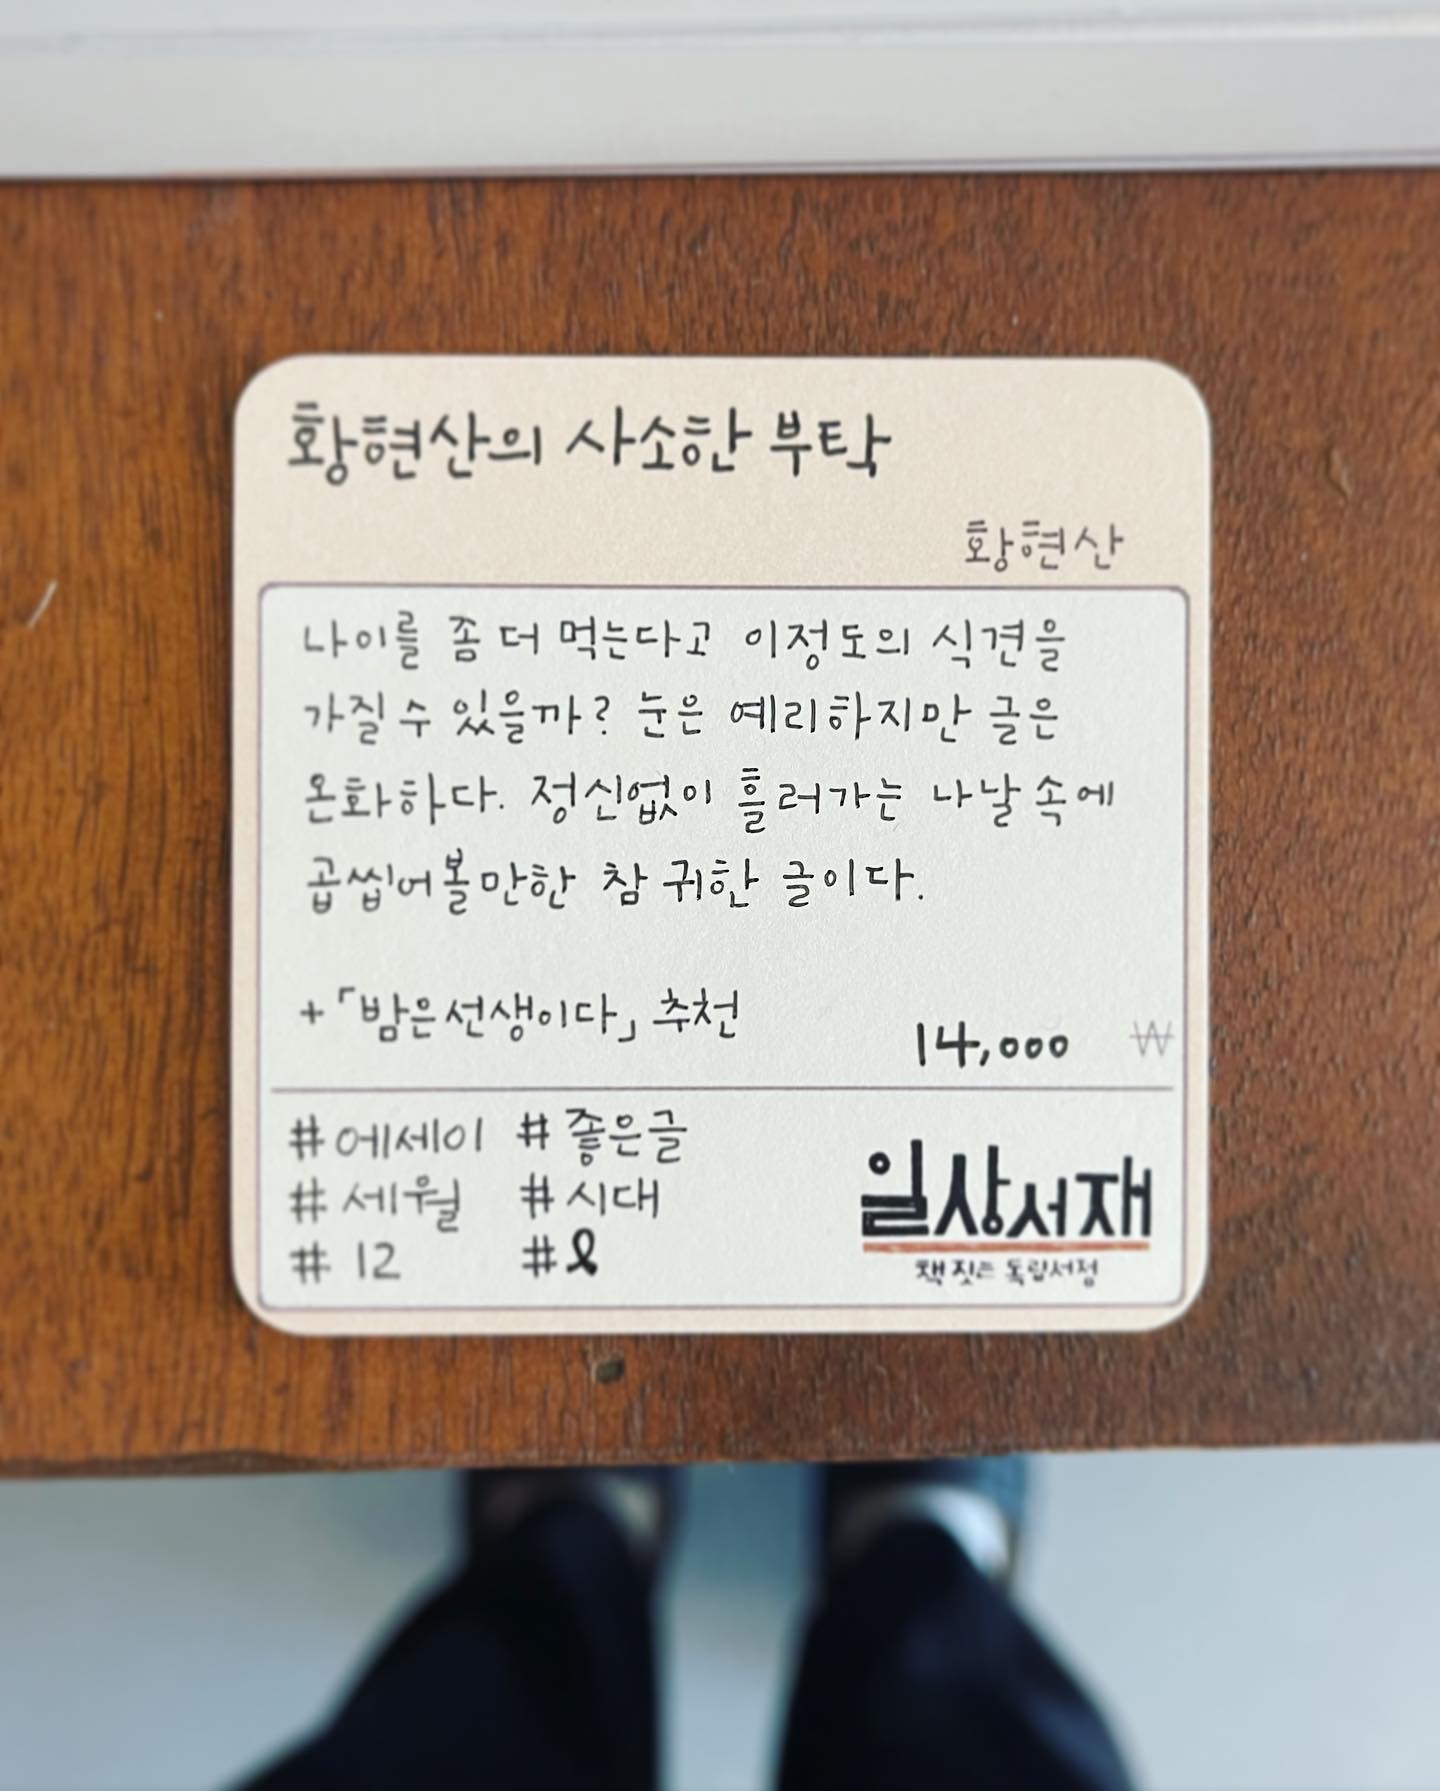 황현산의 사소한 부탁
황현산
나이를 좀 더 먹는다고 이정도의 식견을
가질 수 있을까? 눈은 예리하지만 글은
온화하다. 정신없이 흘러가는 나날 속에
곱씹어볼만한 참 귀한 글이다.
+「밤은선생이다」 추천
14,000 ₩
#에세이 #좋은글
#세월 #시대
#12 #🎗
일상서재
책 짓는 독립서점